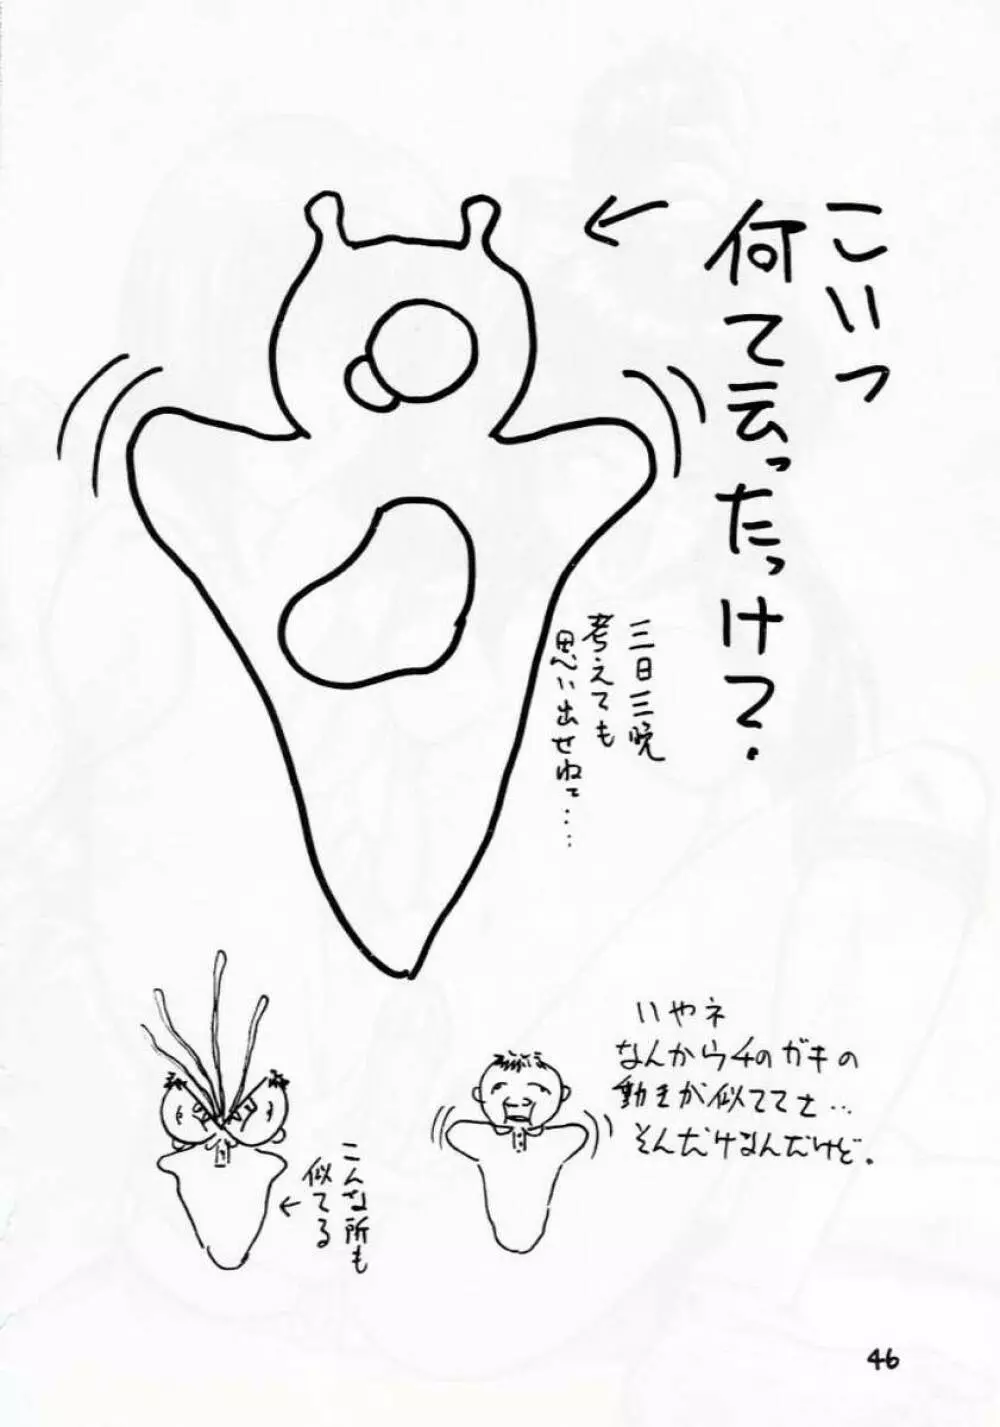 こいつ
何て云ったっけ？
三日三晩
考えても
思い出せねて……
いやネ
なんかウチのガキの
動きが似ててさ…
そんだけなんだけど。
こんな所も
似てる
46